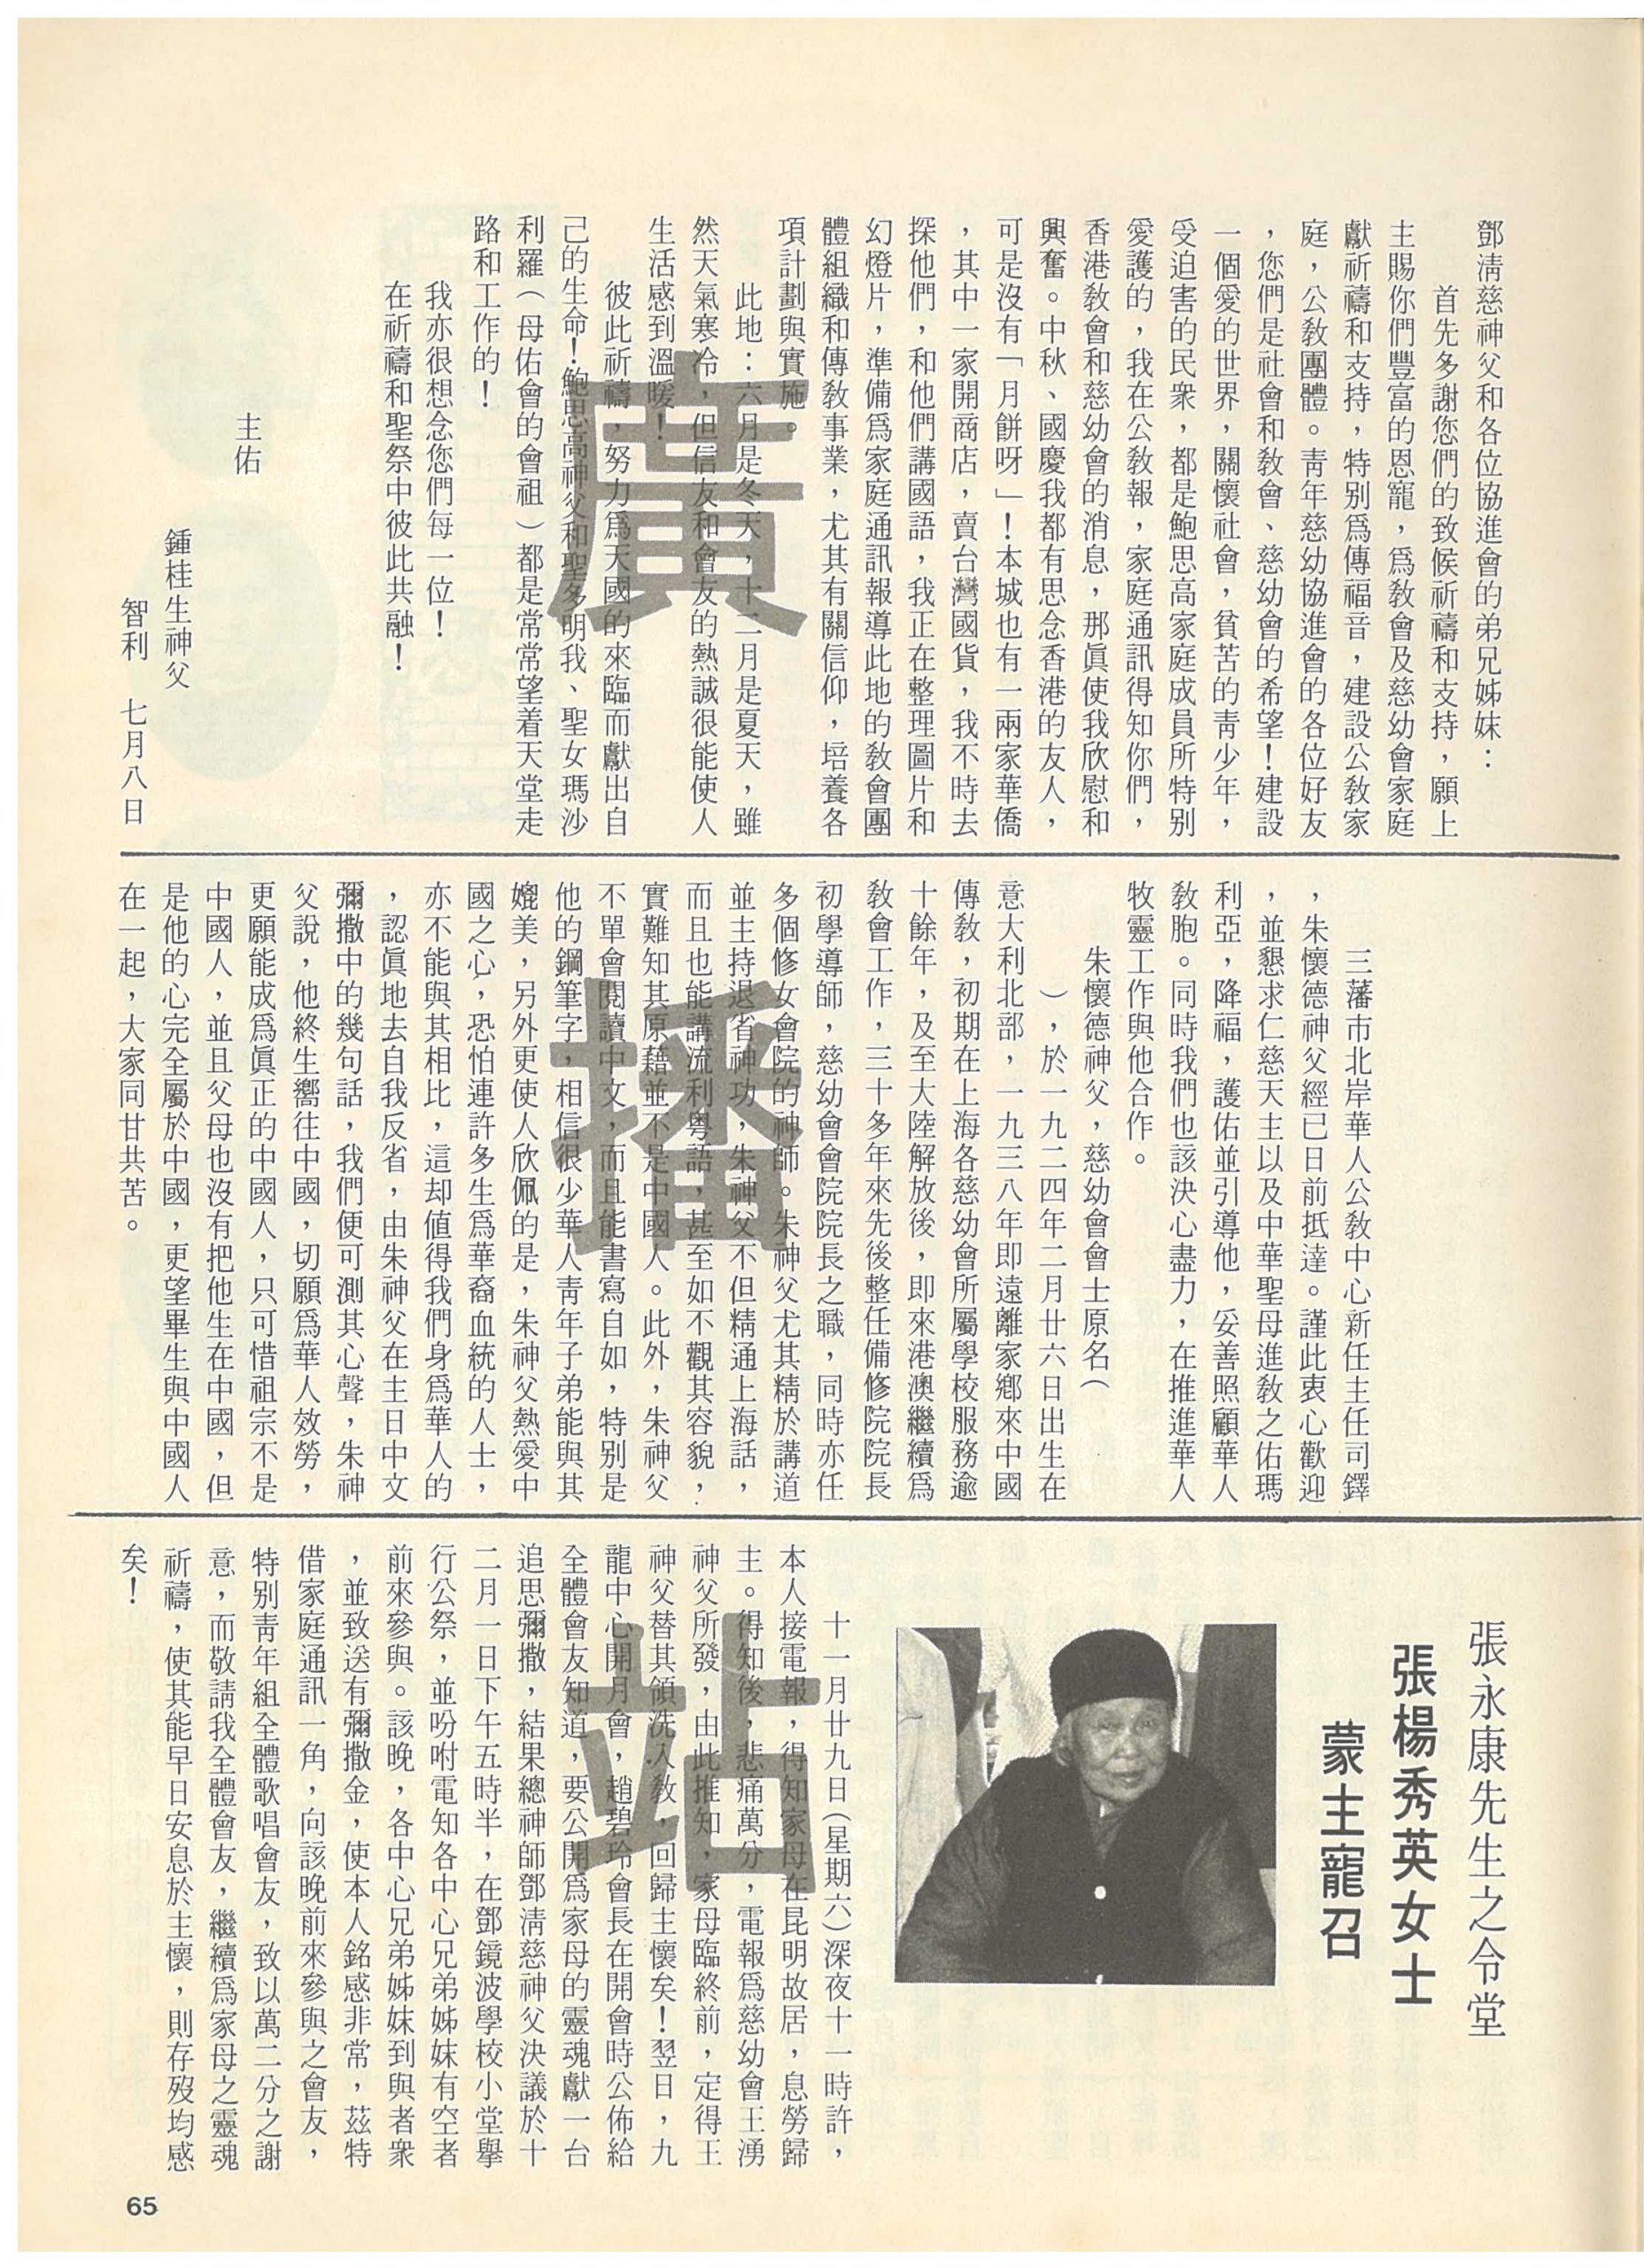 鄧清慈神父和各位協進會的弟兄姊妹：
首先多謝您們的致候祈禱和支持，願上
主賜你們豐富的恩寵，爲教會及慈幼會家庭
獻祈禱和支持，特別爲傳福音，建設公教家
庭，公教團體。青年慈幼協進會的各位好友
，您們是社會和教會、慈幼會的希望！建設
一個愛的世界，關懷社會，貧苦的青少年，
受迫害的民衆，都是鮑思高家庭成員所特別
愛護的，我在公教報，家庭通訊得知你們，
香港教會和慈幼會的消息，那眞使我欣慰和
興奮。中秋、國慶我都有思念香港的友人，
可是沒有「月餅呀」！本城也有一兩家華僑
，其中一家開商店，賣台灣國貨，我不時去
探他們，和他們講國語，我正在整理圖片和
幻燈片，準備爲家庭通訊報導此地的教會團
體組織和傳教事業，尤其有關信仰，培養各
項計劃與實施。
此地：六月是冬天，十二月是夏天，雖
然天氣寒冷，但信友和會友的熱誠很能使人
生活感到溫暖！
彼此祈禱，努力爲天國的來臨而獻出自
己的生命！鮑思高神父和聖多明我、聖女瑪沙
利羅（母佑會的會祖）都是常常望着天堂走
路和工作的！
我亦很想念您們每一位！
在祈禱和聖祭中彼此共融！
主佑
鍾桂生神父
智利　七月八日
廣
播
站
三藩市北岸華人公教中心新任主任司鐸
，朱懷德神父經已日前抵達。謹此衷心歡迎
，並懇求仁慈天主以及中華聖母進教之佑瑪
利亞，降福，護佑並引導他，妥善照顧華人
教胞。同時我們也該決心盡力，在推進華人
牧靈工作與他合作。
朱懷德神父，慈幼會會士原名（
），於一九二四年二月廿六日出生在
意大利北部，一九三八年即遠離家鄉來中國
傳教，初期在上海各慈幼會所屬學校服務逾
十餘年，及至大陸解放後，即來港澳繼續爲
教會工作，三十多年來先後整任備修院院長
初學導師，慈幼會會院院長之職，同時亦任
多個修女會院的神師。朱神父尤其精於講道
並主持退省神功，朱神父不但精通上海話，
而且也能講流利粵語，甚至如不觀其容貌，
實難知其原藉並不是中國人。此外，朱神父
不單會閱讀中文，而且能書寫自如，特別是
他的鋼筆字，相信很少華人青年子弟能與其
媲美，另外更使人欣佩的是，朱神父熱愛中
國之心，恐怕連許多生爲華裔血統的人士，
亦不能與其相比，這却值得我們身爲華人的
，認眞地去自我反省，由朱神父在主日中文
彌撒中的幾句話，我們便可測其心聲，朱神
父說，他終生嚮往中國，切願爲華人效勞，
更願能成爲眞正的中國人，只可惜祖宗不是
中國人，並且父母也沒有把他生在中國，但
是他的心完全屬於中國，更望畢生與中國人
在一起，大家同甘共苦。
張永康先生之令堂
張楊秀英女士
蒙主寵召
十一月廿九日（星期六）深夜十一時許，
本人接電報，得知家母在昆明故居，息勞歸
主。得知後，悲痛萬分，電報爲慈幼會王湧
神父所發，由此推知，家母臨終前，定得王
神父替其領洗入教，回歸主懷矣！翌日，九
龍中心開月會，趙碧玲會長在開會時公佈給
全體會友知道，要公開爲家母的靈魂獻一台
追思彌撒，結果總神師鄧清慈神父決議於十
二月一日下午五時半，在鄧鏡波學校小堂擧
行公祭，並吩咐電知各中心兄弟姊妹有空者
前來參與。該晚，各中心兄弟姊妹到與者衆
，並致送有彌撒金，使本人銘感非常，茲特
借家庭通訊一角，向該晚前來參與之會友，
特別青年組全體歌唱會友，致以萬二分之謝
意，而敬請我全體會友，繼續爲家母之靈魂
祈禱，使其能早日安息於主懷，則存歿均感
矣！
65